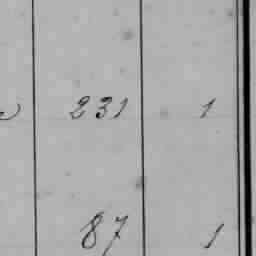 231 1
87 1